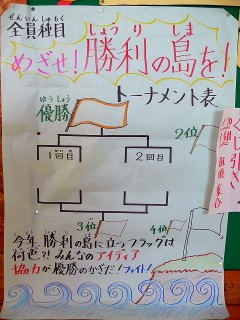 ぜんいんしゅもく
全員種目
しょうり しま
めざせ!勝利の島を!
トーナメント表
ゆうしょう
優勝
2位
1回目
2回目
3位
4位
今年、勝利の島に立つフラッグは
何色?!みんなのアイディア
協力が優勝のかぎだ!ファイト!
くじ引き